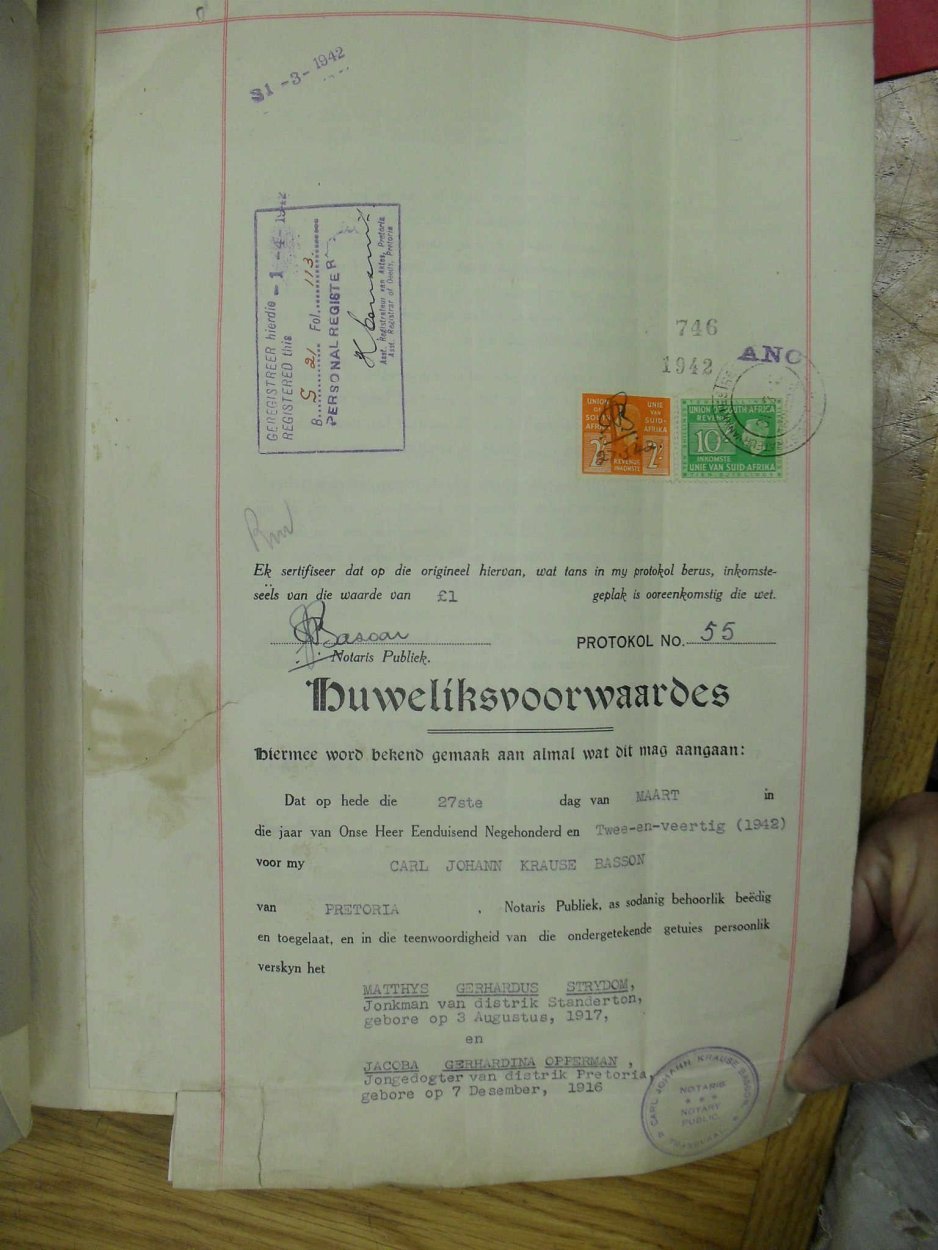 31-3-1942
GEREGISTREER hierdie - 1 - 4 - 1942
REGISTERED this
B. S 21 Fol. 113.
PERSONAL REGISTER
Asst. Registrateur van Aktes, Pretoria
Asst. Registrar of Deeds, Pretoria
746
1942
ANC
UNION OF SOUTH AFRICA
UNIE VAN SUID-AFRIKA
2/- REVENUE INKOMSTE 2/-
UNION OF SOUTH AFRICA
REVENUE
10/-
INKOMSTE
UNIE VAN SUID-AFRIKA
Ek sertifiseer dat op die origineel hiervan, wat tans in my protokol berus, inkomste-
seëls van die waarde van £1 geplak is ooreenkomstig die wet.
Notaris Publiek.
PROTOKOL No. 55
Huweliksvoorwaardes
Hiermee word bekend gemaak aan almal wat dit mag aangaan:
Dat op hede die 27ste dag van MAART in
die jaar van Onse Heer Eenduisend Negehonderd en Twee-en-veertig (1942)
voor my CARL JOHANN KRAUSE BASSON
van PRETORIA , Notaris Publiek, as sodanig behoorlik beëdig
en toegelaat, en in die teenwoordigheid van die ondergetekende getuies persoonlik
verskyn het
MATTHYS GERHARDUS STRYDOM,
Jonkman van distrik Standerton,
gebore op 3 Augustus, 1917,
en
JACOBA GERHARDINA OPPERMAN ,
Jongedogter van distrik Pretoria,
gebore op 7 Desember, 1916
CARL JOHANN KRAUSE BASSON
NOTARIS
NOTARY
PUBLIC
TRANSVAAL